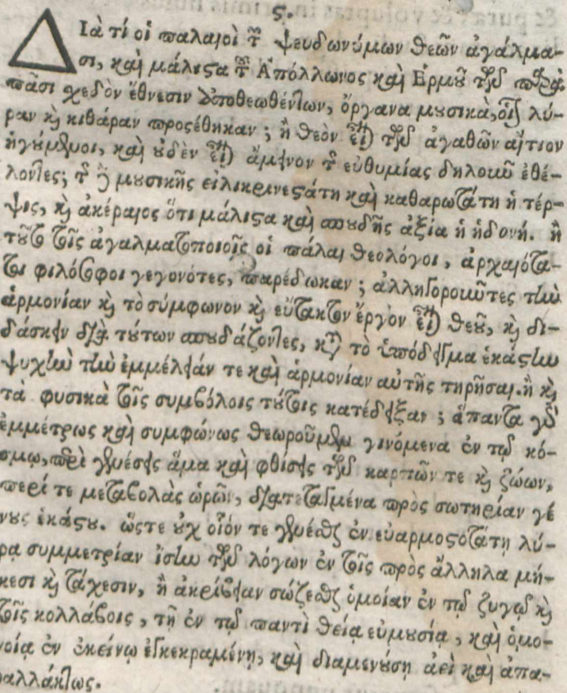 ς.
Διὰ τί οἱ παλαιοὶ τῶν ψευδωνύμων θεῶν ἀγάλμα-
σι, καὶ μάλιστα τοῦ Ἀπόλλωνος καὶ Ἑρμοῦ τῶν παρὰ
πᾶσι σχεδὸν ἔθνεσιν ἀποθεωθέντων, ὄργανα μουσικὰ, οἷον λύ-
ραν καὶ κιθάραν προσέθηκαν; ἢ θεὸν εἶναι τῶν ἀγαθῶν αἴτιον
ἡγούμενοι, καὶ οὐδὲν εἶναι ἄμεινον τῆς εὐθυμίας δηλοῦν ἐθέ-
λοντες; τῆς γὰρ μουσικῆς εἰλικρινεστάτη καὶ καθαρωτάτη ἡ τέρ-
ψις, καὶ ἀκέραιος ὅτι μάλιστα καὶ σπουδῆς ἀξία ἡ ἡδονή. ἢ
τοῦτο τοῖς ἀγαλματοποιοῖς οἱ πάλαι θεολόγοι, ἀρχαιότα-
τοι φιλόσοφοι γεγονότες, παρέδωκαν; ἀλληγοροῦντες τὴν
ἁρμονίαν καὶ τὸ σύμφωνον καὶ εὔτακτον ἔργον εἶναι θεοῦ, καὶ δι-
δάσκειν διὰ τούτων σπουδάζοντες, κατὰ τὸ ὑπόδειγμα ἑκάστην
ψυχὴν τὴν ἐμμέλειάν τε καὶ ἁρμονίαν αὐτῆς τηρῆσαι. ἢ καὶ
τὰ φυσικὰ τοῖς συμβόλοις τούτοις κατέδειξαν; ἅπαντα γὰρ
ἐμμέτρως καὶ συμφώνως θεωροῦμεν γινόμενα ἐν τῷ κό-
σμῳ, περὶ γενέσεις ἅμα καὶ φθίσεις τῶν καρπῶν τε καὶ ζώων,
περί τε μεταβολὰς ὡρῶν, διατεταγμένα πρὸς σωτηρίαν γέ
νους ἑκάστου. ὥστε οὐχ οἷόν τε γενέσθαι ἐν εὐαρμοστοτάτῃ λύ-
ρᾳ συμμετρίαν ἴσην τῶν λόγων ἐν τοῖς πρὸς ἄλληλα μή-
κεσι καὶ τάχεσιν, ἢ ἀκρίβειαν σώζεσθαι ὁμοίαν ἐν τῷ ζυγῷ καὶ
τοῖς κολλάβοις, τῇ ἐν τῷ παντὶ θείᾳ εὐμουσίᾳ, καὶ ὁμο-
νοίᾳ ἐν ἐκείνῳ ἐγκεκραμένῃ, καὶ διαμενούσῃ ἀεὶ καὶ ἀπα-
ραλλάκτως.